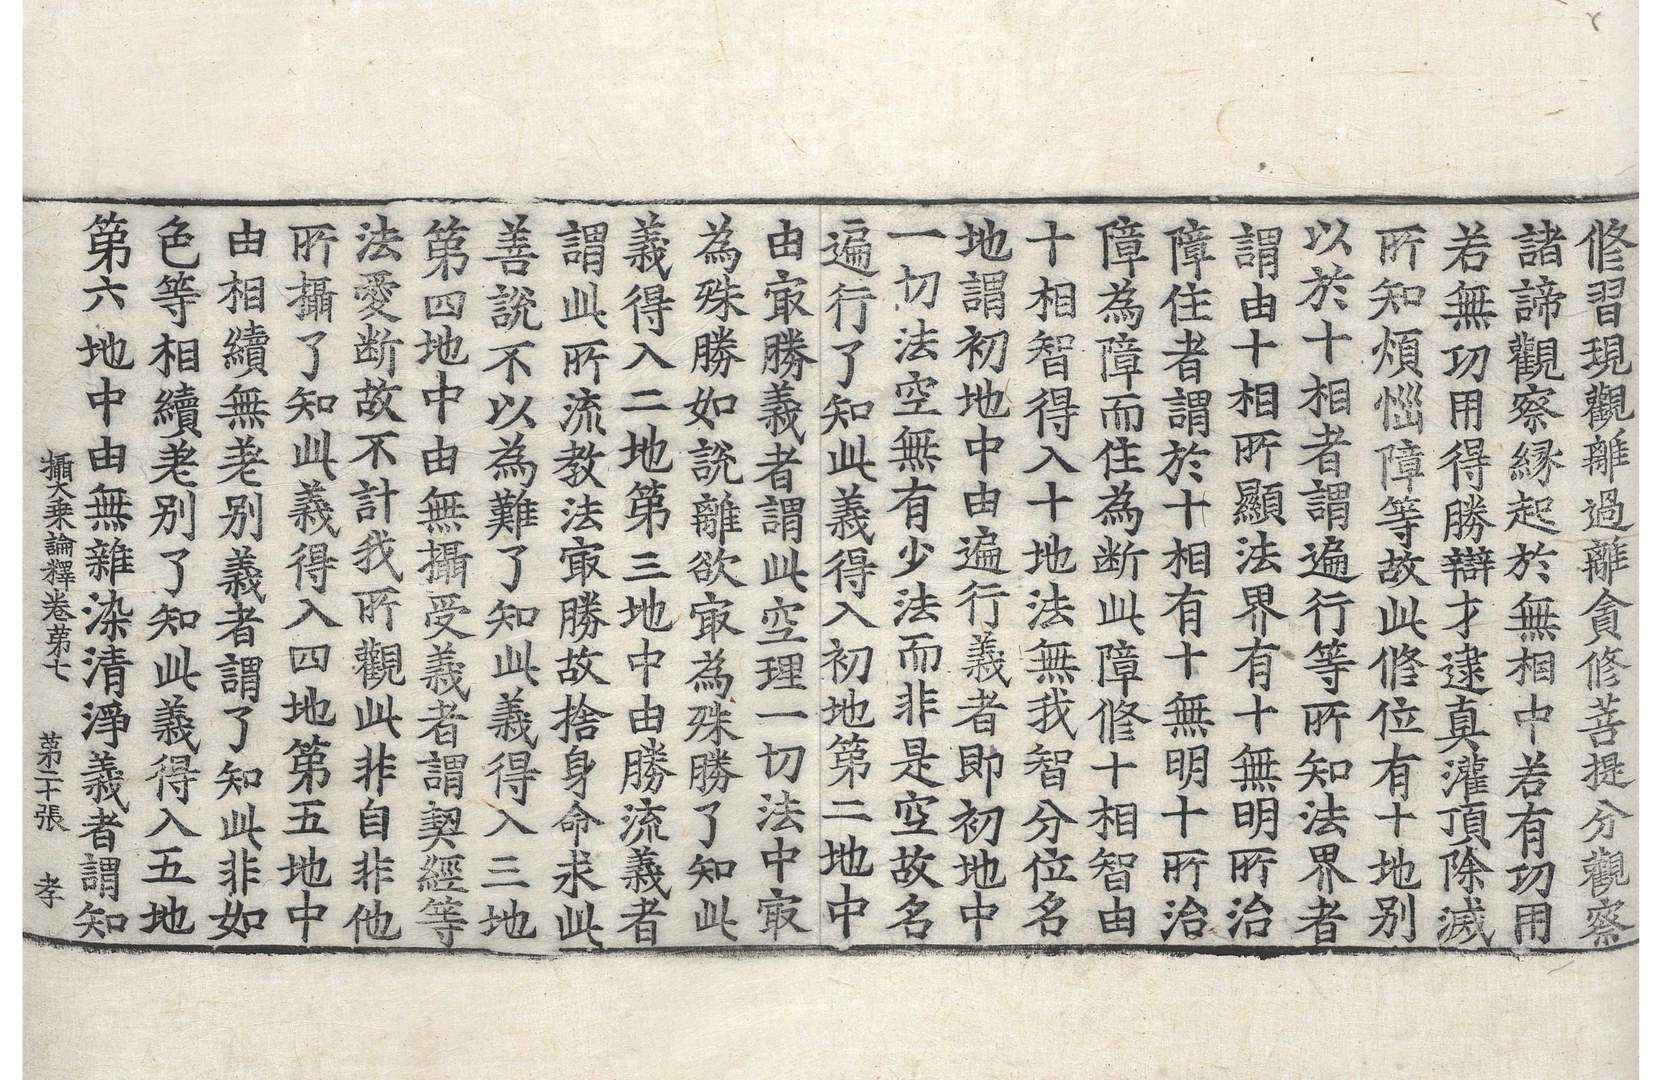 修習現觀離過離貪修菩提分觀察
諸諦觀察緣起於無相中若有功用
若無功用得勝辯才逮真灌頂除滅
所知煩惱障等故此修位有十地別
以於十相者謂遍行等所知法界者
謂由十相所顯法界有十無明所治
障住者謂於十相有十無明十所治
障為障而住為断此障修十相智由
十相智得入十地法無我智分位名
地謂初地中由遍行義者即初地中
一切法空無有少法而非是空故名
遍行了知此義得入初地第二地中
由㝡勝義者謂此空理一切法中㝡
為殊勝如說離欲㝡為殊勝了知此
義得入二地第三地中由勝流義者
謂此所流教法㝡勝故捨身命求此
善說不以為難了知此義得入三地
第四地中由無攝受義者謂契經等
法愛断故不計我所觀此非自非他
所攝了知此義得入四地第五地中
由相續無差別義者謂了知此非如
色等相續差別了知此義得入五地
第六地中由無雜染清淨義者謂知
攝大乘論釋卷第七　第二十張　孝